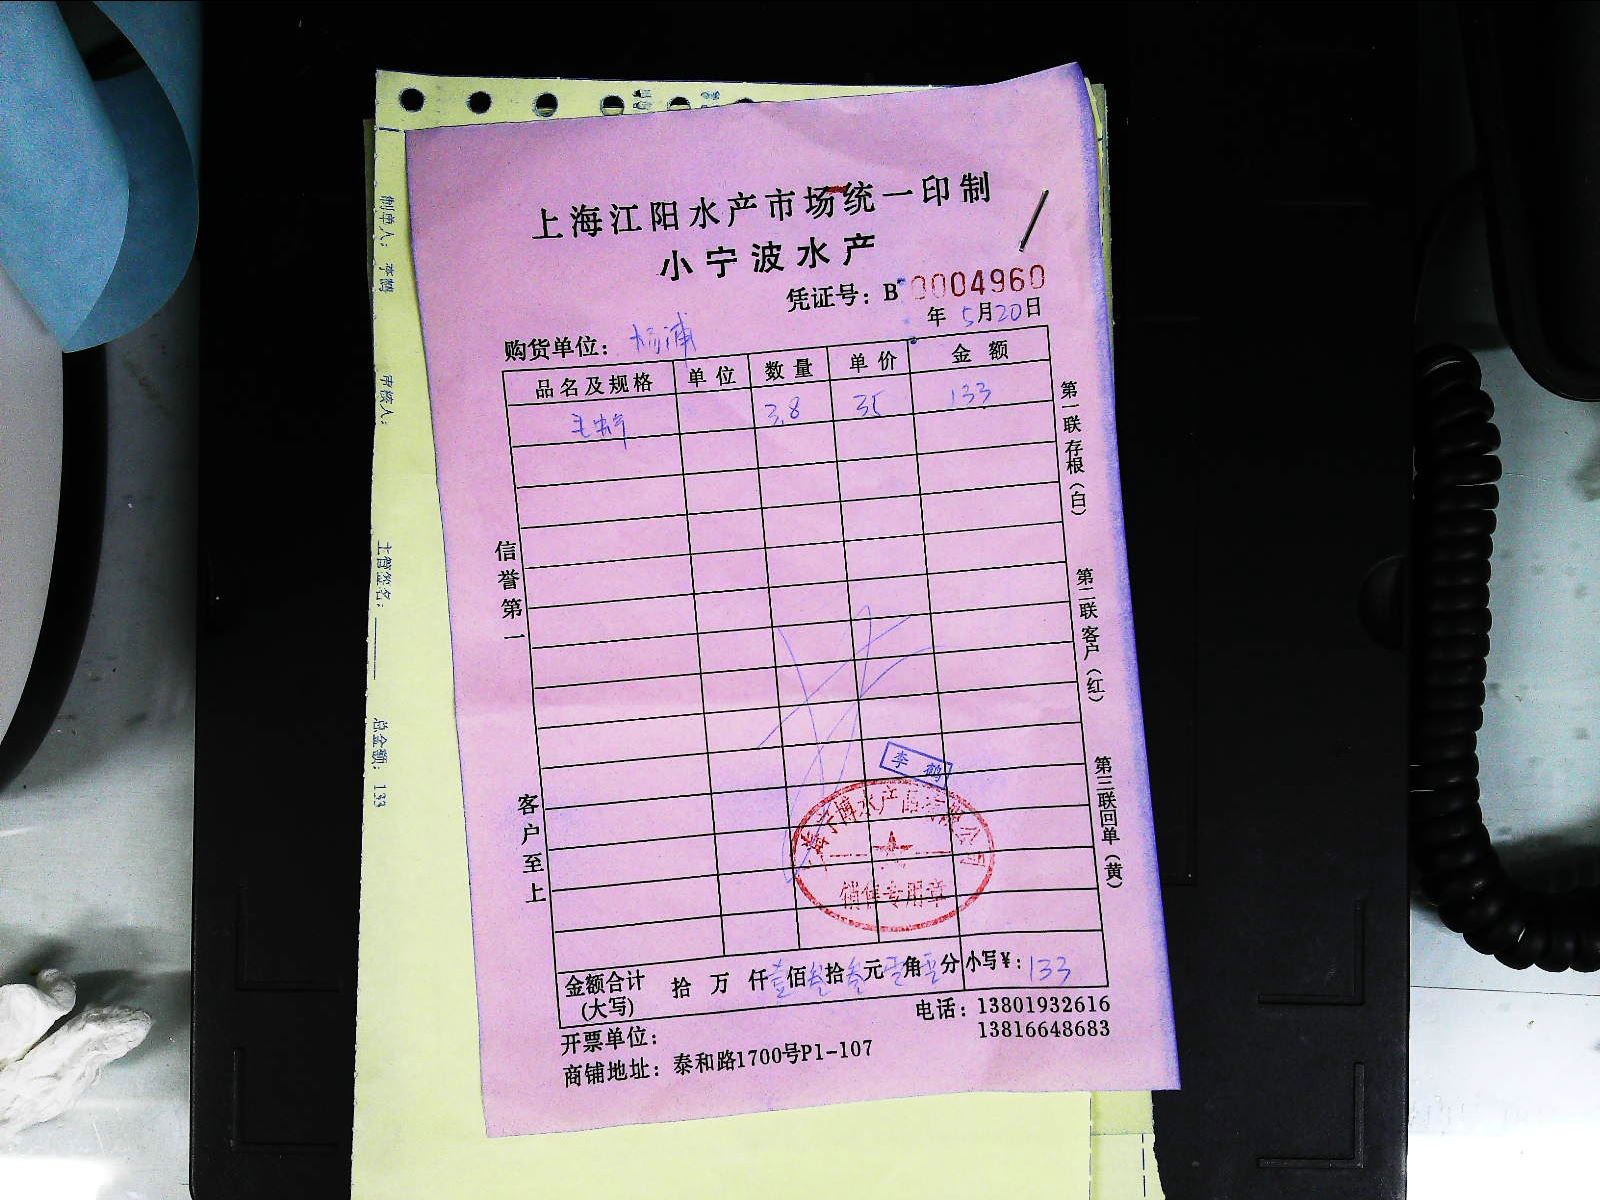 上海江阳水产市场统一印制
小宁波水产
凭证号：B 0004960
年 5月20日
购货单位：杨浦
品名及规格 单位 数量 单价 金额
3.8 35 133
信誉第一
客户至上
第一联存根（白）
第二联客户（红）
第三联回单（黄）
李鹤
销售专用章
金额合计 拾 万 仟壹佰叁拾叁元零角零分 小写¥：133
(大写)
开票单位：
电话：13801932616
13816648683
商铺地址：泰和路1700号P1-107
制单人：李鹤
审核人：
主管签名：
总金额：133